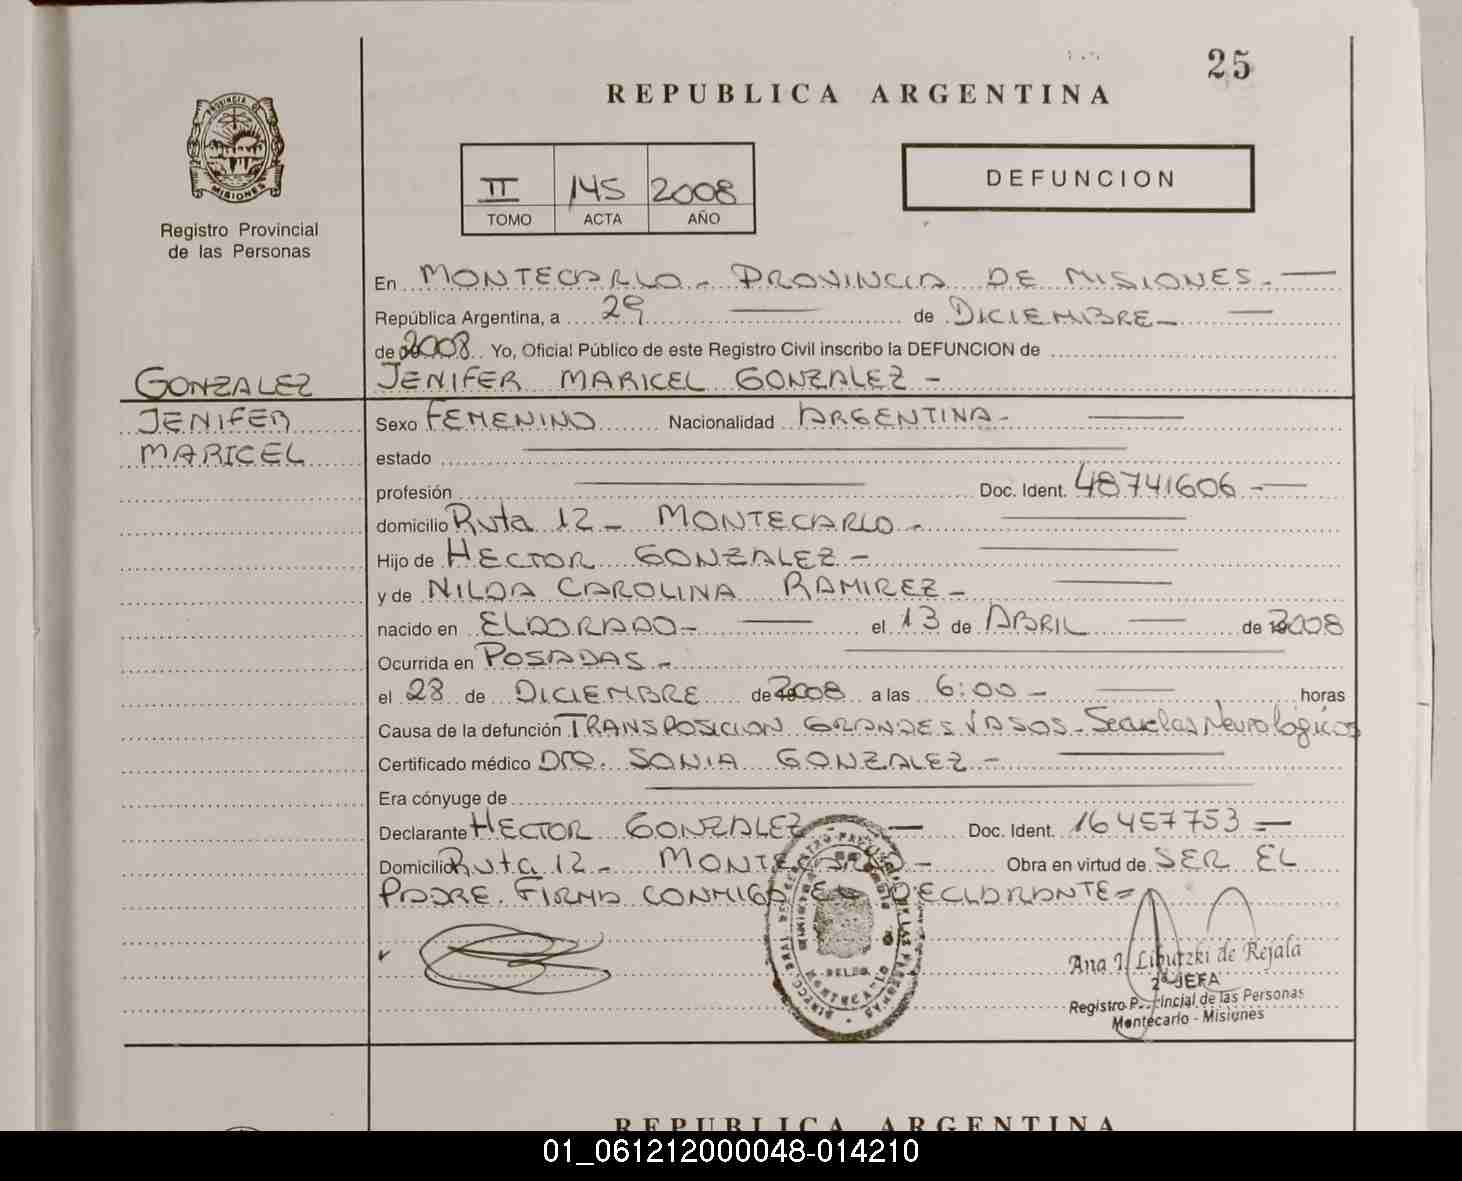 25
REPUBLICA ARGENTINA
PROVINCIA D
MISIONES
Registro Provincial
de las Personas
II 145 2008
TOMO ACTA AÑO
DEFUNCION
En MONTECARLO - PROVINCIA DE MISIONES -
República Argentina, a 29 de DICIEMBRE -
de 2008 Yo, Oficial Público de este Registro Civil inscribo la DEFUNCION de
GONZALEZ JENIFER MARICEL GONZALEZ -
JENIFER Sexo FEMENINO Nacionalidad ARGENTINA -
MARICEL estado
profesión Doc. Ident. 48741606 -
domicilio Ruta 12 - MONTECARLO -
Hijo de HECTOR GONZALEZ -
y de NILDA CAROLINA RAMIREZ -
nacido en ELDORADO - el 13 de ABRIL de 2008
Ocurrida en POSADAS -
el 28 de DICIEMBRE de 2008 a las 6:00 - horas
Causa de la defunción TRANSPOSICION GRANDES VASOS - Secuelas Neurológicas
Certificado médico Dra. SONIA GONZALEZ -
Era cónyuge de
Declarante HECTOR GONZALEZ - Doc. Ident. 16457753 =
Domicilio Ruta 12 - MONTECARLO - Obra en virtud de SER EL
PADRE. FIRMA CONMIGO EL DECLARANTE =
Ana I. Libutzki de Rejala
2ª JEFA
Registro Provincial de las Personas
Montecarlo - Misiones
REPUBLICA ARGENTINA
01_061212000048-014210